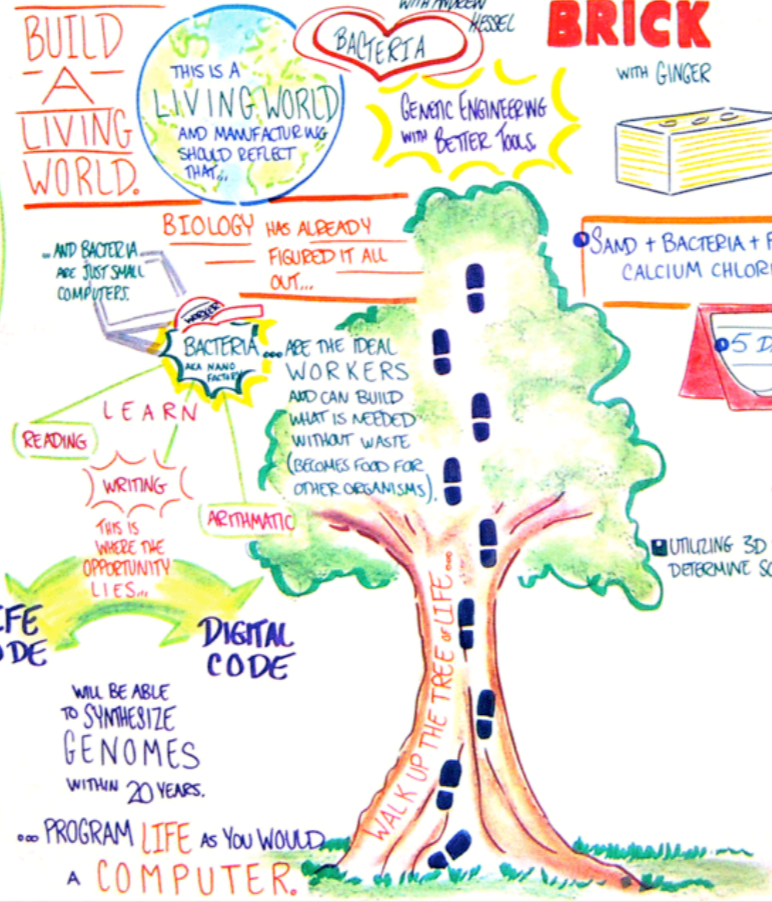 BUILD
A
LIVING
WORLD.
THIS IS A
LIVING WORLD
AND MANUFACTURING
SHOULD REFLECT
THAT...
WITH ANDREW
HESSEL
BACTERIA
GENETIC ENGINEERING
WITH BETTER TOOLS.
BRICK
WITH GINGER
BIOLOGY HAS ALREADY
FIGURED IT ALL
OUT...
...AND BACTERIA
ARE JUST SMALL
COMPUTERS.
WORKER
BACTERIA...
AKA NANO
FACTORY
ARE THE IDEAL
WORKERS
AND CAN BUILD
WHAT IS NEEDED
WITHOUT WASTE
(BECOMES FOOD FOR
OTHER ORGANISMS).
LEARN
READING
WRITING
ARITHMATIC
THIS IS
WHERE THE
OPPORTUNITY
LIES...
DIGITAL
CODE
WILL BE ABLE
TO SYNTHESIZE
GENOMES
WITHIN 20 YEARS.
...PROGRAM LIFE AS YOU WOULD
A COMPUTER.
WALK UP THE TREE OF LIFE...
SAND + BACTERIA +
CALCIUM
5
UTILIZING 3D
DETERMINE